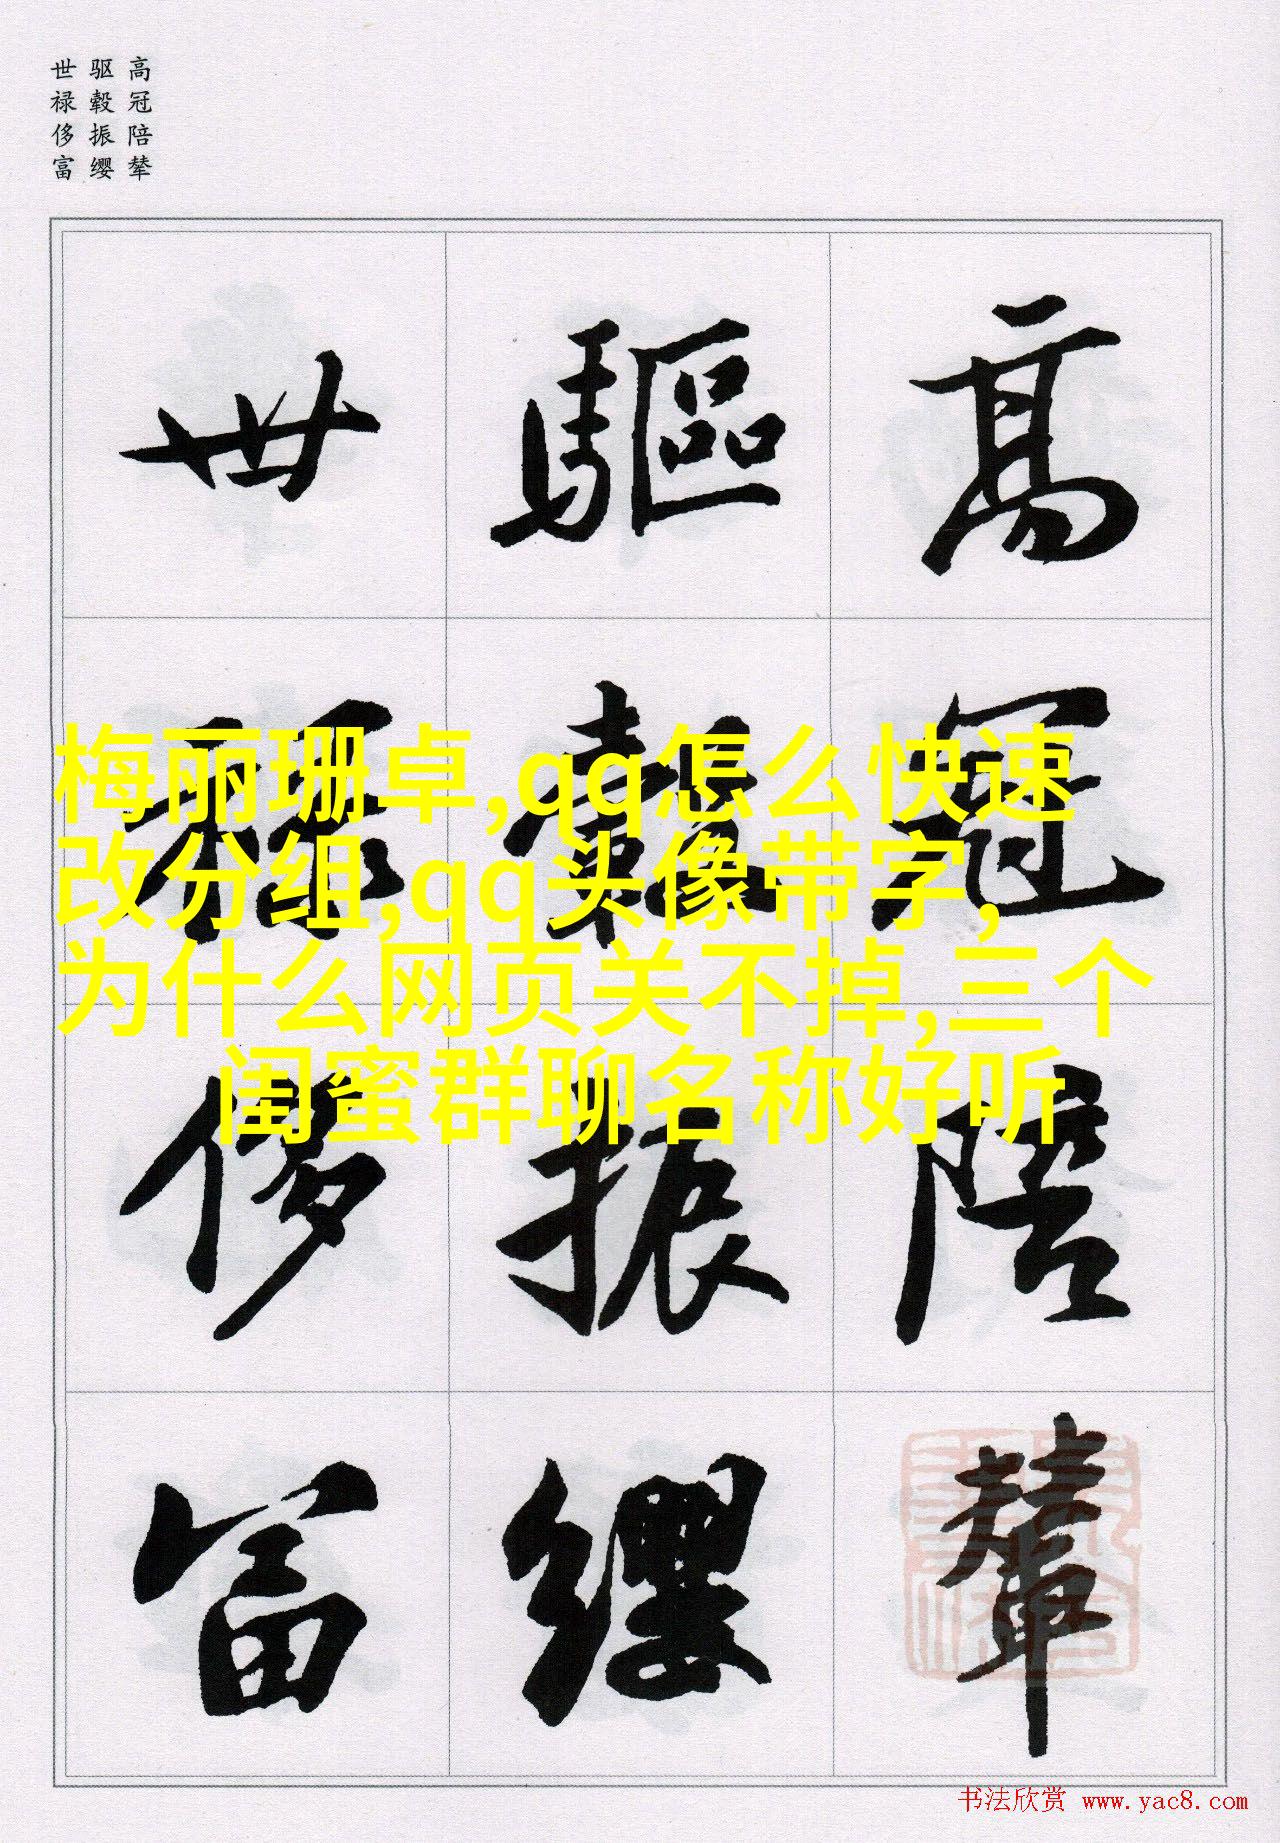 高冠陪辇
驱毂振缨
世禄侈富
高冠陪輦
驅轂振纓
世禄侈富
梅丽珊卓,qq怎么快速
改分组,qq头像带字,
为什么网页关不掉,三个
闺蜜群聊名称好听
书法欣赏 www.yac8.com